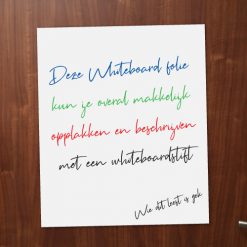 Deze Whiteboard folie
kun je overal makkelijk
opplakken en beschrijven
met een whiteboardstift
Wie dit leest is gek